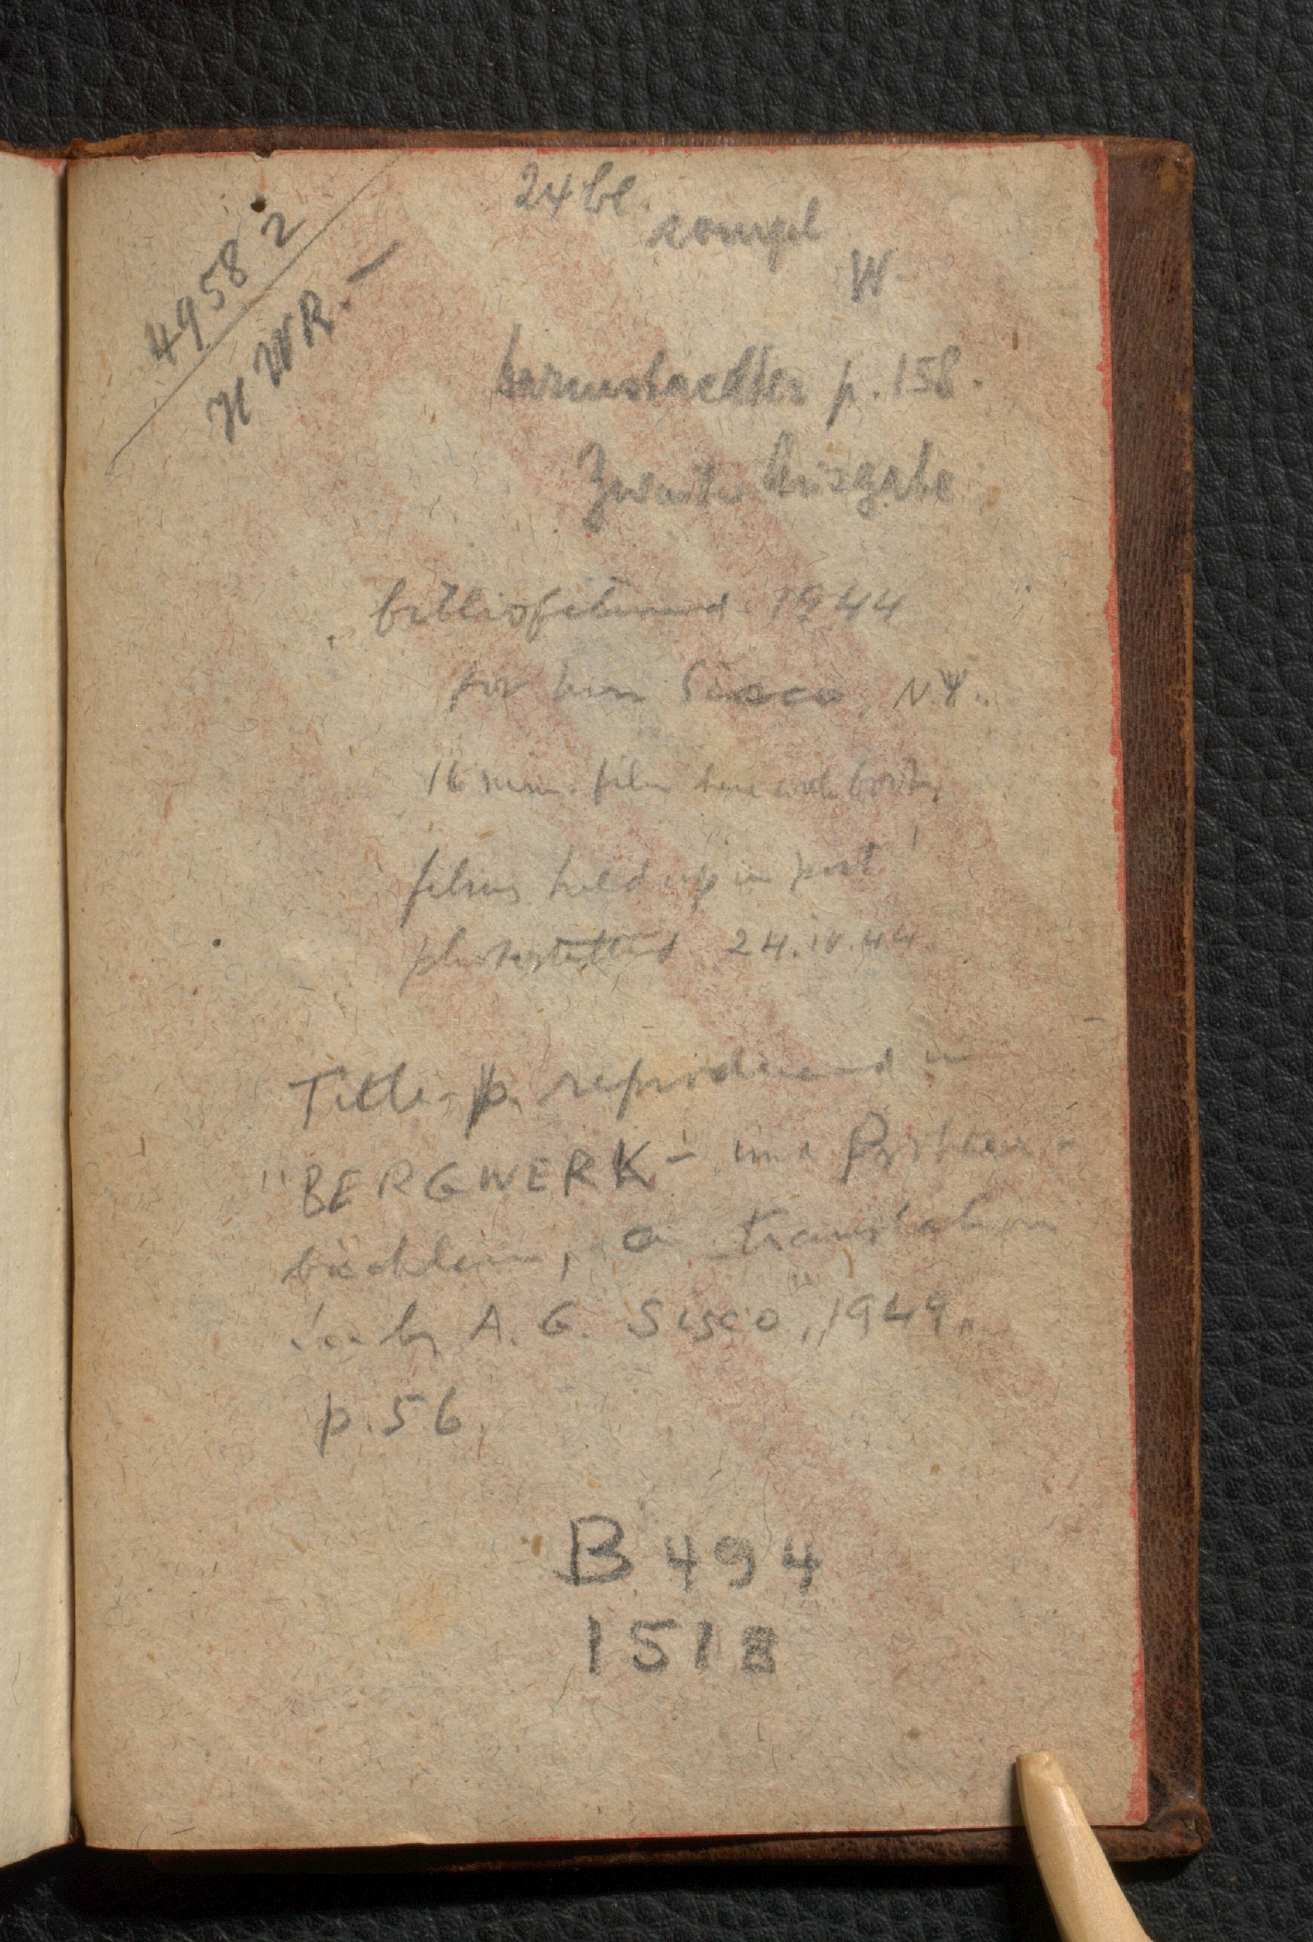 24 bl.
compl
W-
49582
H WR.-
Darmstaedter p. 158.
Zweite Ausgabe
bibliofilmed 1944
for Sisco, N.Y.
16 mm. film
films held up in post
photostatted 24.IV.44.
Title-p. reproduced in
"BERGWERK- und Probier-
büchlein, a translation
by A. G. Sisco", 1949.
p. 56.
B 494
1518